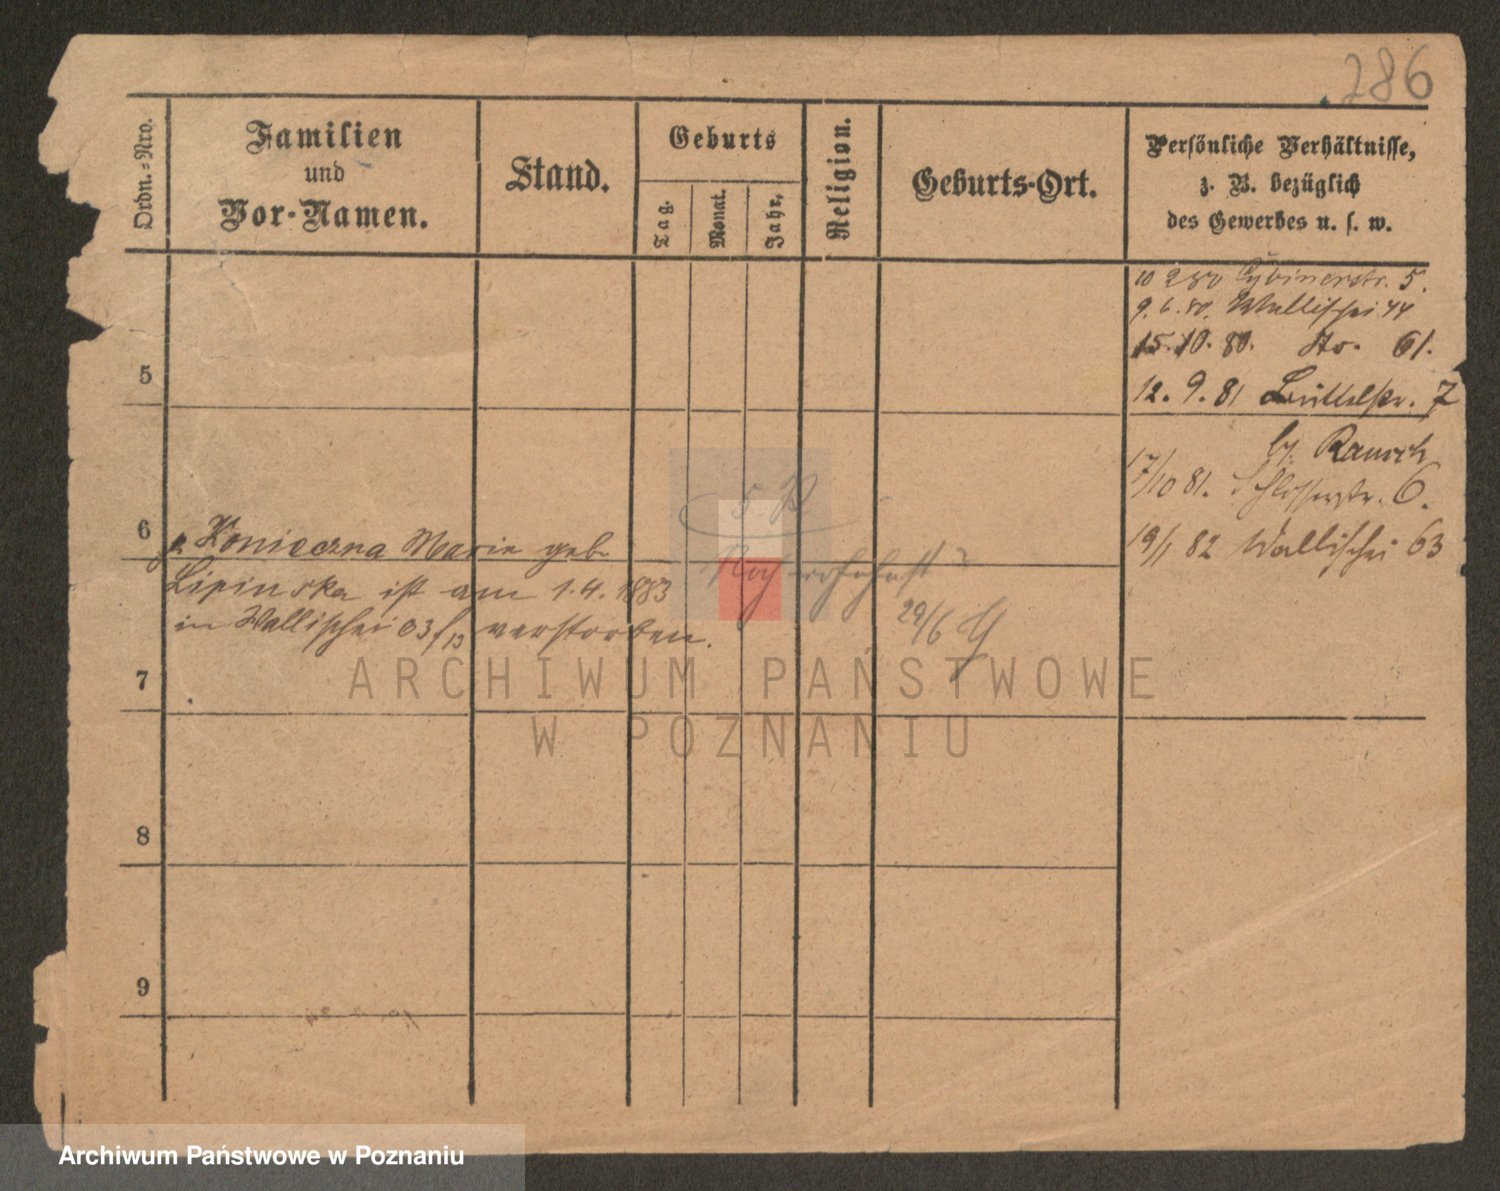 286
Ordn.-Nro.
Familien
und
Vor-Namen.
Stand.
Geburts
Tag.
Monat.
Jahr,
Religion.
Geburts-Ort.
Persönliche Verhältnisse,
z. B. bezüglich
des Gewerbes u. s. w.
10 2 80 Cybinerstr. 5.
9. 6. 80. Wallischei 44
15. 10. 80. 61.
12. 9. 81 7
by Rausch
17/10 81. Schlosserstr. 6.
19/1 82 Wallischei 63
5
6
Konieczna Marie geb.
Lipinska ist am 1. 4. 1883
in Wallischei 63 verstorben.
29/6
7
8
9
ARCHIWUM PAŃSTWOWE
W POZNANIU
Archiwum Państwowe w Poznaniu